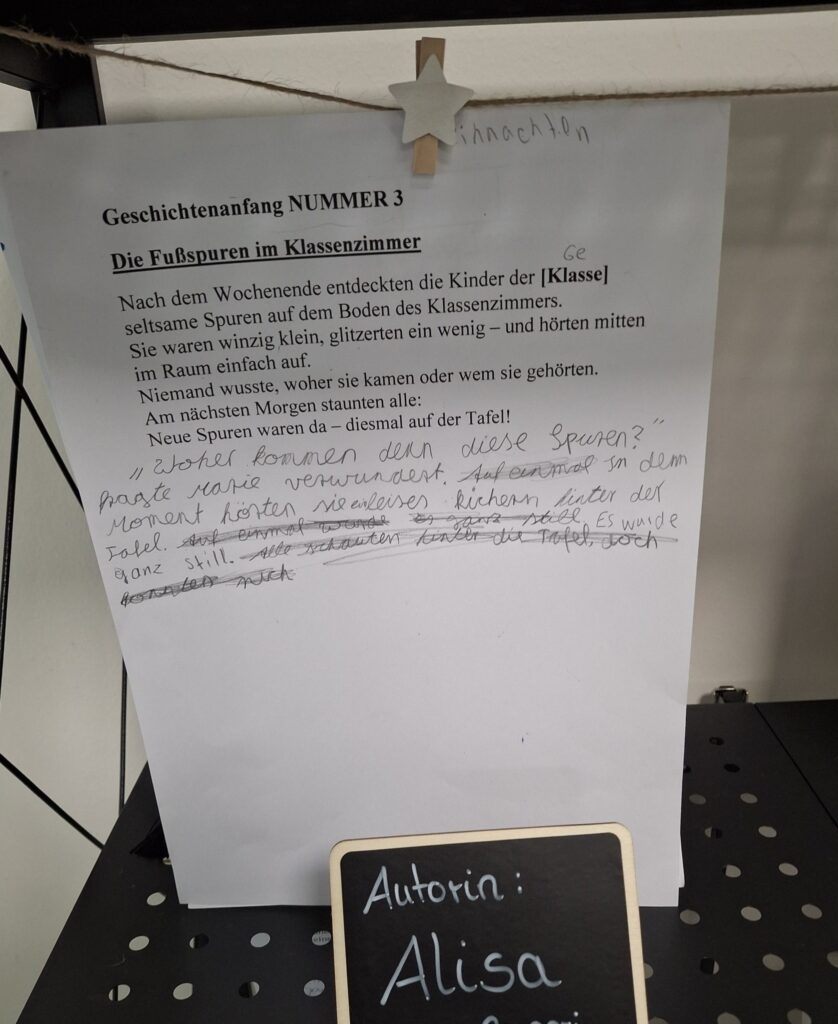 ihnachten
Geschichtenanfang NUMMER 3
Die Fußspuren im Klassenzimmer
Ge
Nach dem Wochenende entdeckten die Kinder der [Klasse]
seltsame Spuren auf dem Boden des Klassenzimmers.
Sie waren winzig klein, glitzerten ein wenig – und hörten mitten
im Raum einfach auf.
Niemand wusste, woher sie kamen oder wem sie gehörten.
Am nächsten Morgen staunten alle:
Neue Spuren waren da – diesmal auf der Tafel!
„Woher kommen denn diese Spuren?"
fragte Marie verwundert. Auf einmal In dem
Moment hörten sie ein leises kichern hinter der
Tafel. Auf einmal wurde Es ganz still. Es wurde
ganz still. Alle schauten hinter die Tafel, doch
konnten nich
Autorin:
Alisa